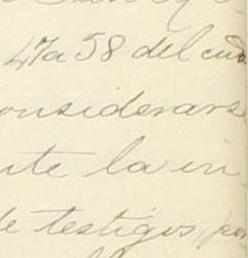 47 a 58 del cua
considerars
nte la in
de testigos, por